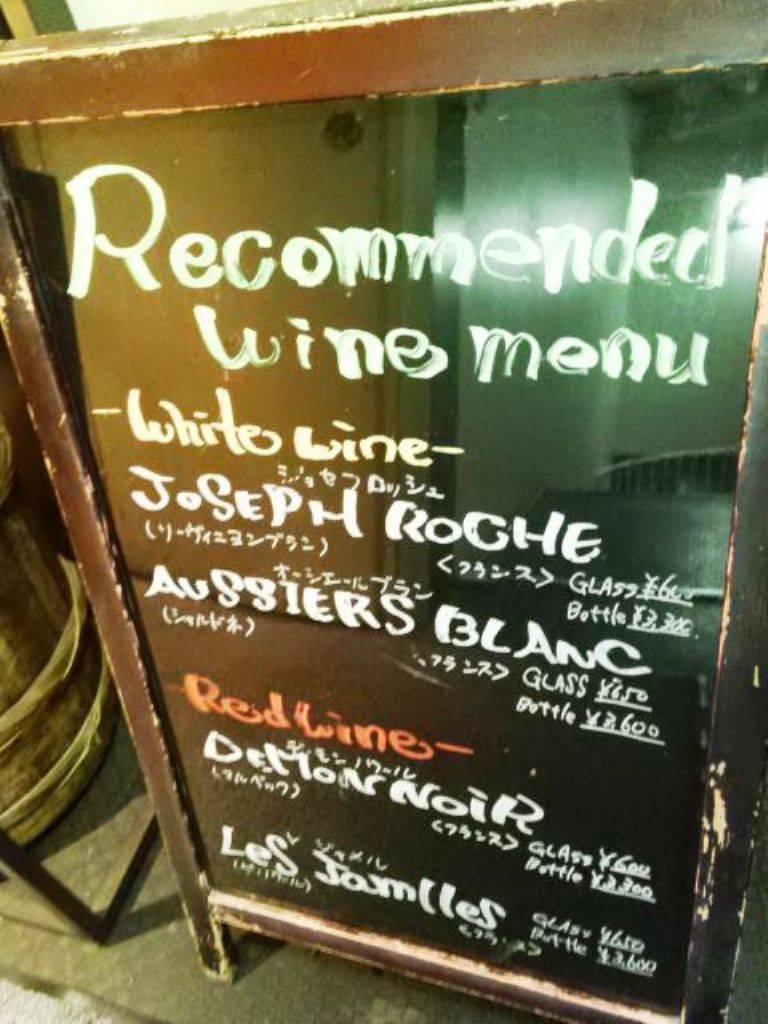 Recommended
wine menu
-White wine-
ジョセフ ロッシュ
JOSEPH ROCHE
(ソーヴィニヨンブラン)
<フランス> GLASS ¥600
Bottle ¥3,300
オーシエールブラン
AUSSIERS BLANC
(シャルドネ)
<フランス> GLASS ¥650
Bottle ¥3,600
-Red Wine-
デイモン ノワール
DEMON NOIR
(マルベック)
<フランス> GLASS ¥600
Bottle ¥3,300
レ ジャメル
LES Jamlles
<フランス> GLASS ¥650
Bottle ¥3,600